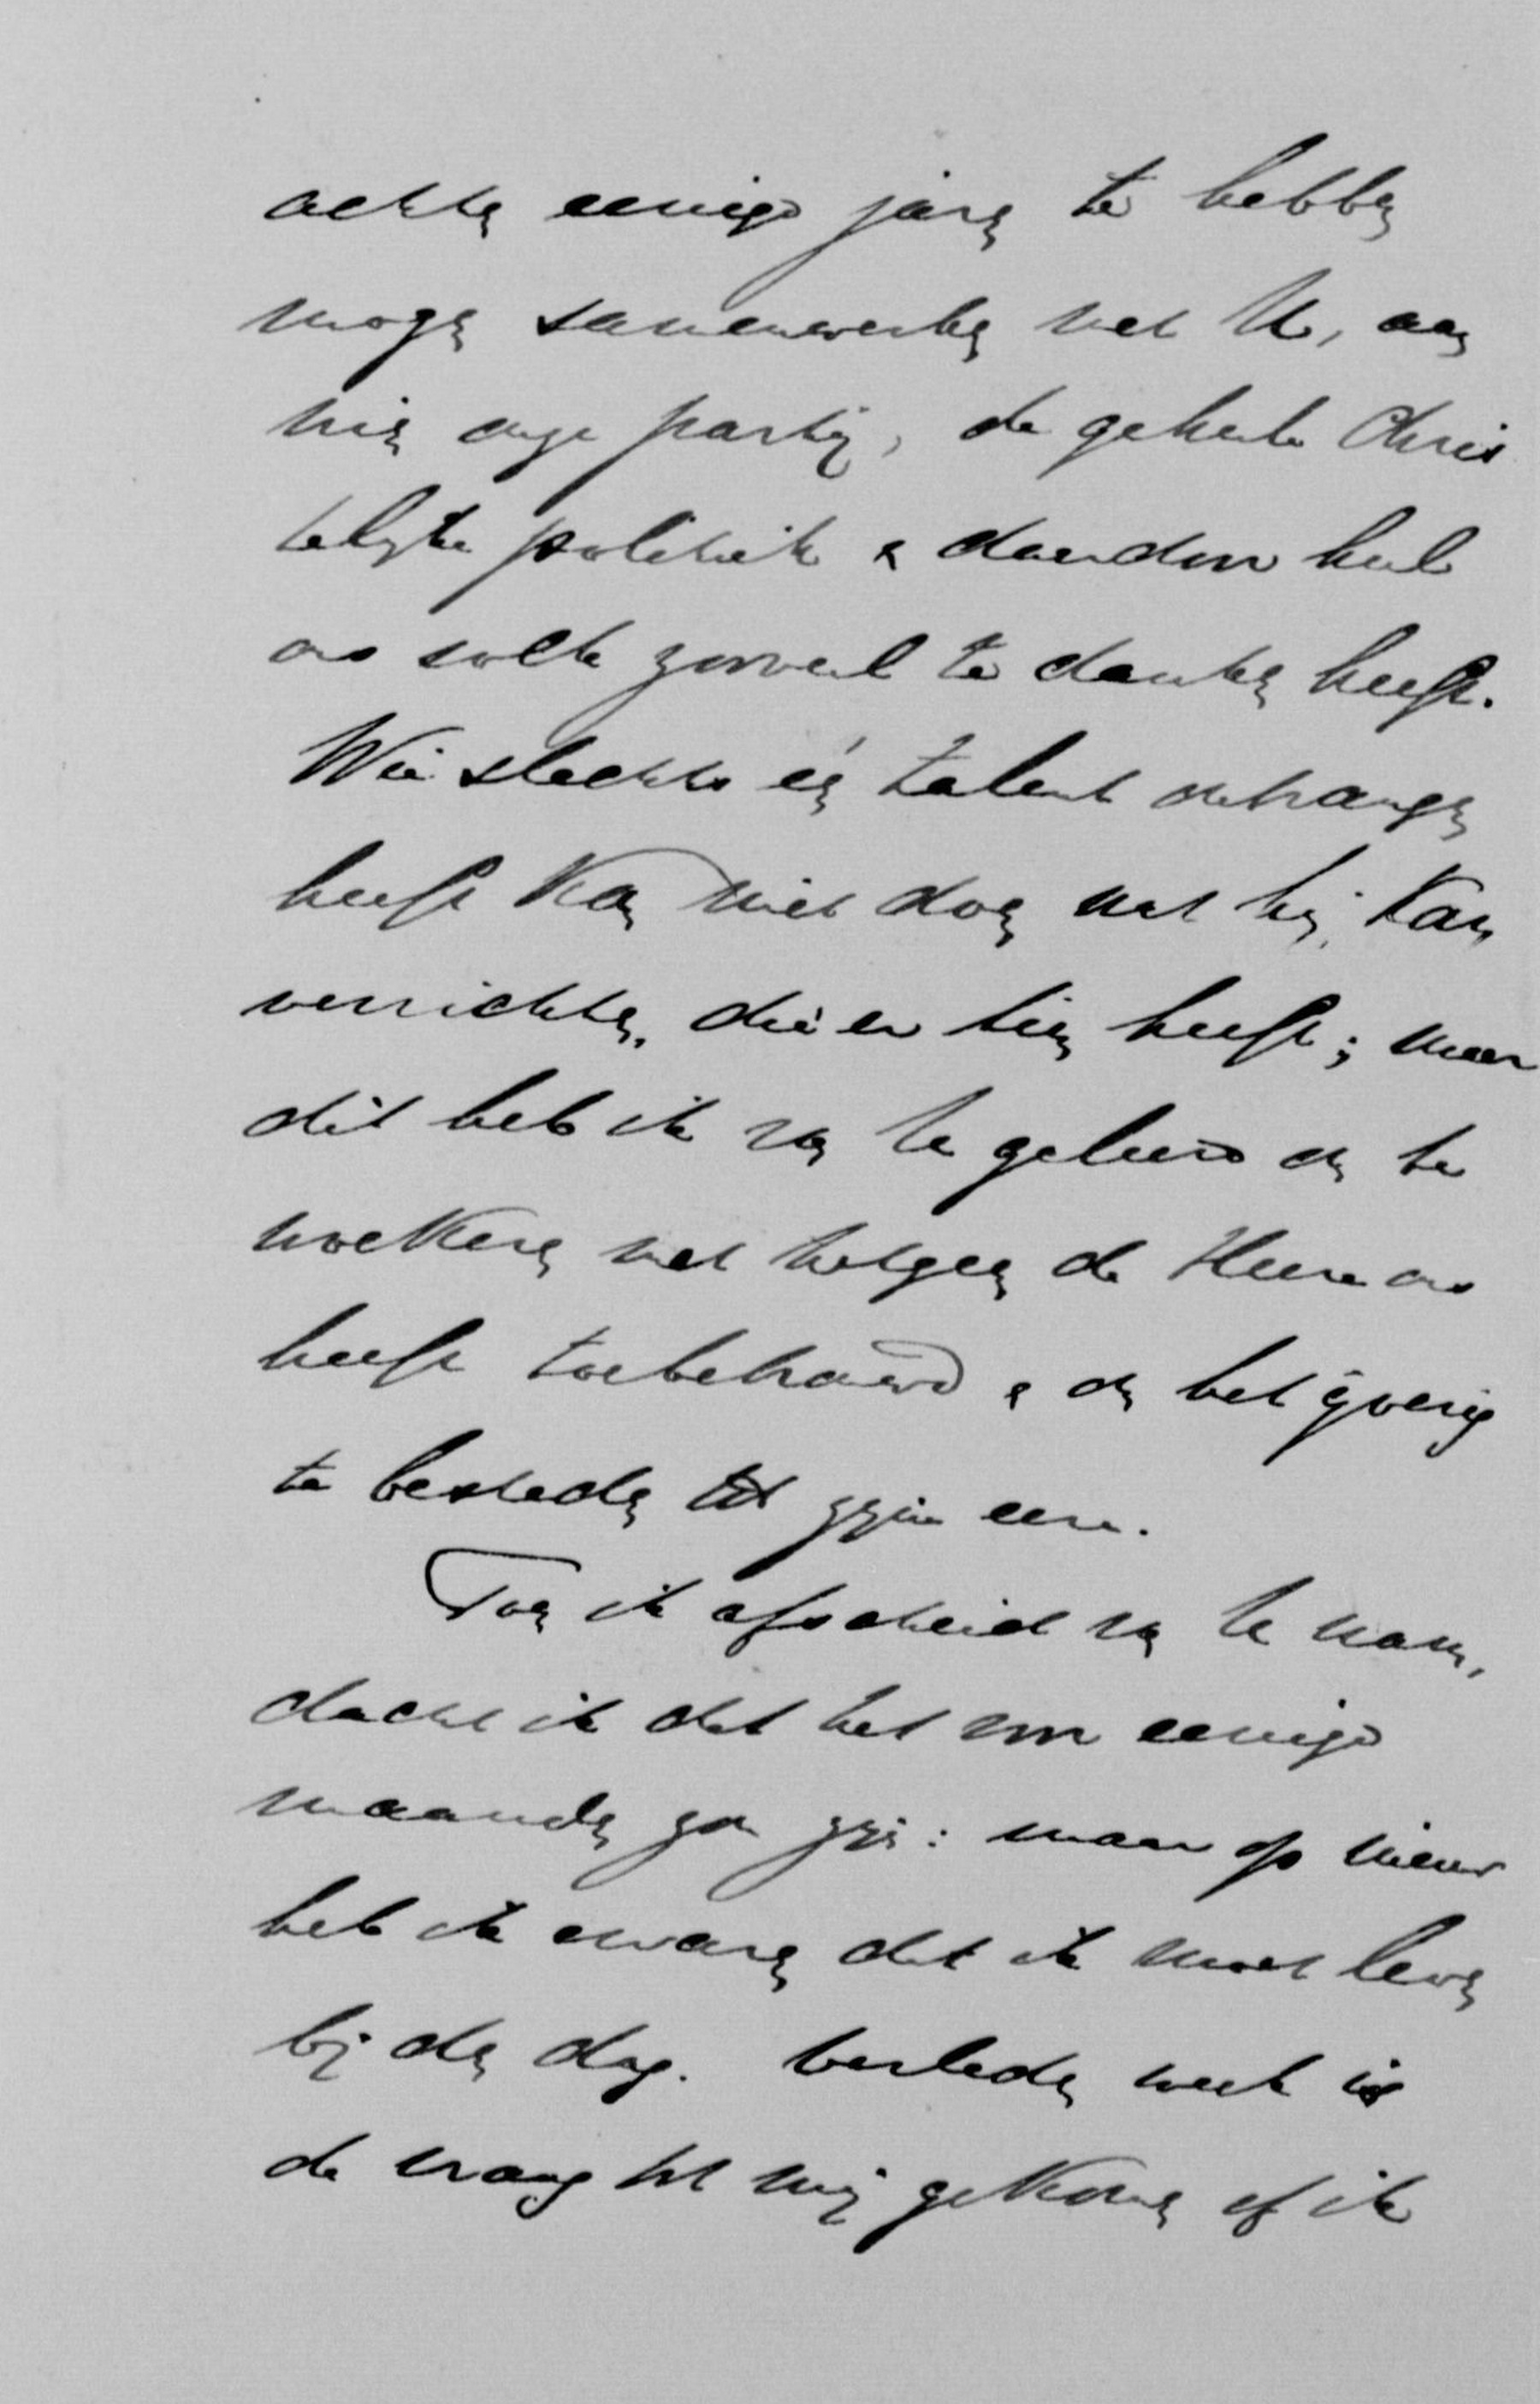 achten eenige jaren te hebben
mogen samenwerken met U, aan
wien onze partij, de geheele Chris
telijke politiek & daardoor heel
ons volk zooveel te danken heeft.
Wie slechts één talent ontvangen
heeft kan niet doen wat hij kan
verrichten, die er tien heeft; maar
dit heb ik van U geleerd om te
woekeren met hetgeen de Heere ons
heeft toebetrouwd & om het ijverig
te besteden tot zijn eere.
Toen ik afscheid van U nam,
dacht ik dat het voor eenige
maanden zou zijn: maar op nieuw
heb ik ervaren dat ik moet leven
bij den dag. Verleden week is
de vraag tot mij gekomen of ik